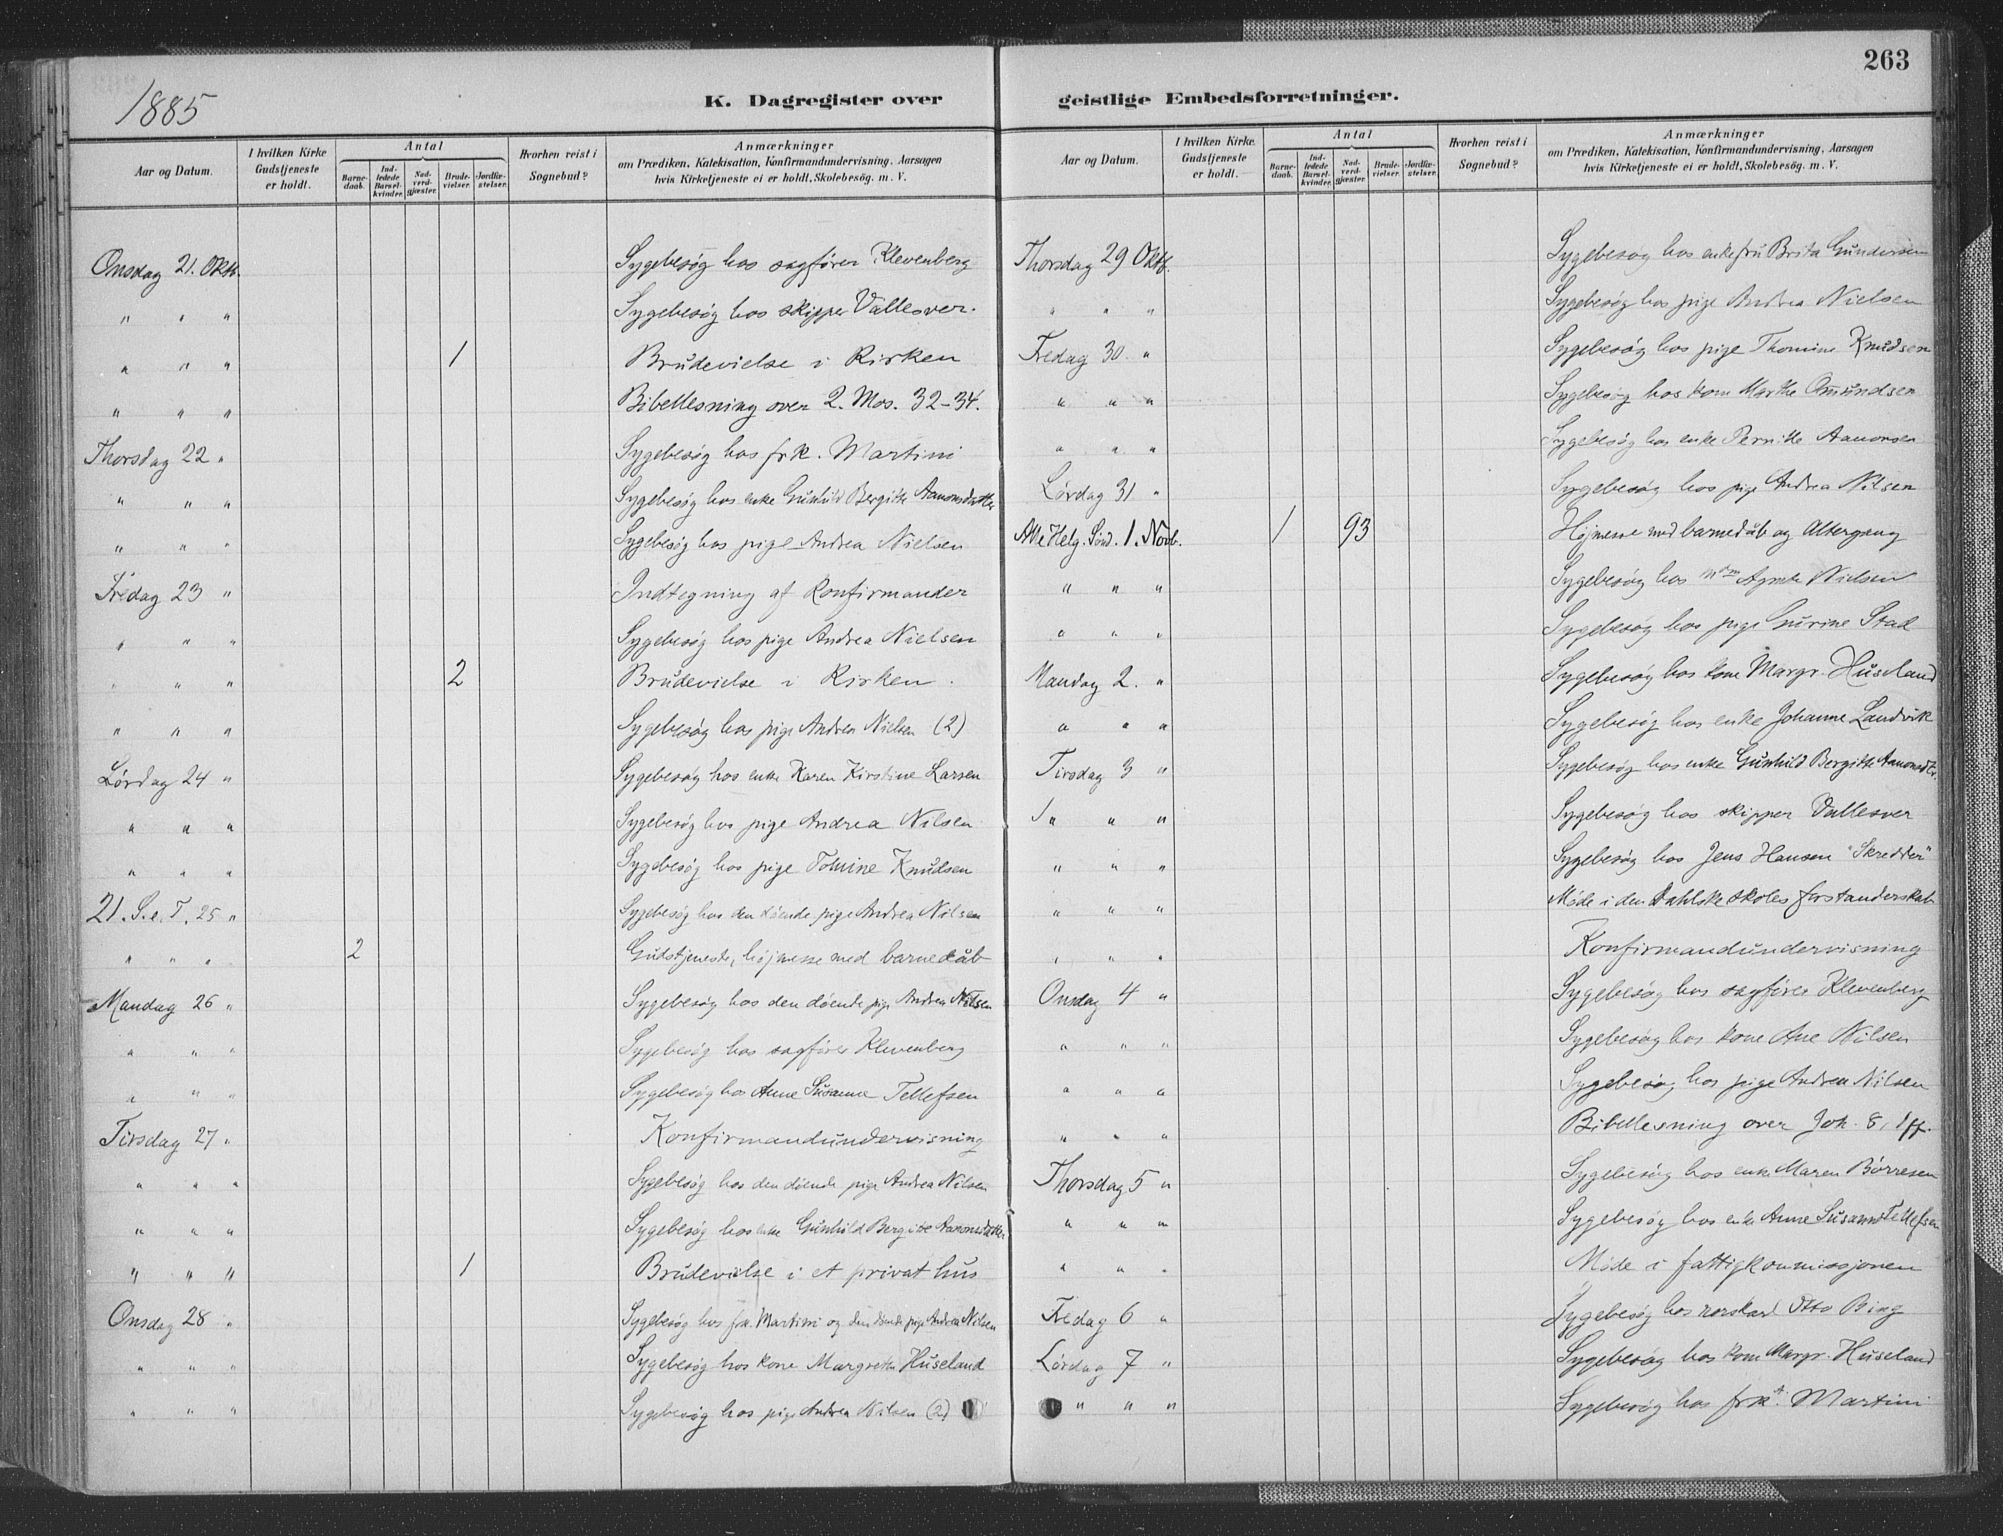 263
1885
K. Dagregister over geistlige Embedsforretninger.
Aar og Datum. I hvilken Kirke Gudstjeneste er holdt. Antal Barnedaab. Indledede Barselkvinder. Nadverdgjæster. Brudevielser. Jordfæstelser. Hvorhen reist i Sognebud? Anmærkninger om Prædiken, Katekisation, Konfirmandundervisning, Aarsagen hvis Kirketjeneste ei er holdt, Skolebesøg. m. V.
Onsdag 21. Oktb. Sygebesøg hos sagfører Klevenberg
" " " Sygebesøg hos skipper Vallesver.
" " " 1 Brudevielse i Kirken
" " " Bibellesning over 2. Mos. 32-34.
Thorsdag 22 " Sygebesøg hos frk. Martini
" " " Sygebesøg hos enke Gunhild Bergitte Aanonsdatter
" " " Sygebesøg hos pige Andrea Nielsen
Fredag 23 " Indtegning af Konfirmander
" " " Sygebesøg hos pige Andrea Nielsen
" " " 2 Brudevielse i Kirken.
" " " Sygebesøg hos pige Andrea Nielsen (2)
Lørdag 24 " Sygebesøg hos enke Karen Kirstine Larsen
" " " Sygebesøg hos pige Andrea Nilsen
" " " Sygebesøg hos pige Tomine Knudsen
21. S. e. T. 25 " Sygebesøg hos den døende pige Andrea Nilsen
" " " 2 Gudstjeneste, højmesse med barnedåb
Mandag 26 " Sygebesøg hos den døende pige Andrea Nilsen
" " " Sygebesøg hos sagfører Klevenberg
" " " Sygebesøg hos Anne Susanne Tellefsen
Tirsdag 27 " Konfirmandundervisning
" " " Sygebesøg hos den døende pige Andrea Nilsen
" " " Sygebesøg hos enke Gunhild Bergitte Aanonsdatter
" " " 1 Brudevielse i et privat hus
Onsdag 28 " Sygebesøg hos frk. Martini og den døende pige Andrea Nilsen
" " " Sygebesøg hos kone Margrethe Huseland
" " " Sygebesøg hos pige Andrea Nilsen (2)
Aar og Datum. I hvilken Kirke Gudstjeneste er holdt. Antal Barnedaab. Indledede Barselkvinder. Nadverdgjæster. Brudevielser. Jordfæstelser. Hvorhen reist i Sognebud? Anmærkninger om Prædiken, Katekisation, Konfirmandundervisning, Aarsagen hvis Kirketjeneste ei er holdt, Skolebesøg. m. V.
Thorsdag 29 Oktb. Sygebesøg hos enkefru Brita Gundersen
" " " Sygebesøg hos pige Andrea Nielsen
Fredag 30 " Sygebesøg hos pige Thomine Knudsen
" " " Sygebesøg hos kone Marthe Omundsen
" " " Sygebesøg hos enke Pernille Aanonsen
Lørdag 31 " Sygebesøg hos pige Andrea Nilsen
Alle Helg. Sønd. 1. Novb. 1 93 Højmesse med barnedåb og Altergang
" " " Sygebesøg hos mdm Agnete Nielsen
" " " Sygebesøg hos pige Gurine Stad
Mandag 2. " Sygebesøg hos kone Margr. Huseland
" " " Sygebesøg hos enke Johanne Landvik
Tirsdag 3 " Sygebesøg hos enke Gunhild Bergitte Aanonsdtr.
" " " Sygebesøg hos skipper Vallesver
" " " Sygebesøg hos Jens Hansen "Skredder"
" " " Møde i den Dahlske skoles forstanderskab
" " " Konfirmandundervisning
Onsdag 4 " Sygebesøg hos sagfører Klevenberg
" " " Sygebesøg hos kone Ane Nilsen
" " " Sygebesøg hos pige Andrea Nilsen
" " " Bibellesning over Joh. 8, 1 ff.
Thorsdag 5 " Sygebesøg hos enke Maren Børresen
" " " Sygebesøg hos enke Anne Susanne Tellefsen
" " " Møde i fattigkommissjonen
Fredag 6 " Sygebesøg hos Otto Bing
Lørdag 7 " Sygebesøg hos kone Margr. Huseland
" " " Sygebesøg hos frk. Martini